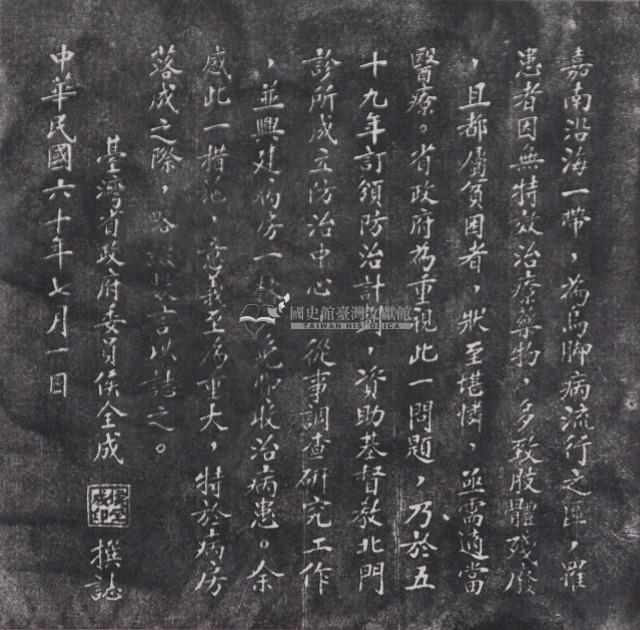 嘉南沿海一帶，為烏脚病流行之區，罹
患者因無特效治療藥物，多致肢體殘廢
，且都屬貧困者，狀至堪憐，亟需適當
醫療。省政府為重視此一問題，乃於五
十九年訂頒防治計，資助基督教北門
診所成立防治中心，從事調查研究工作
，並興建病房一，免費收治病患。余
感此一措施，意義至為重大，特於病房
落成之際，略言以誌之。
臺灣省政府委員侯全成 撰誌
中華民國六十年七月一日
國史館臺灣文獻館
TAIWAN HISTORICA